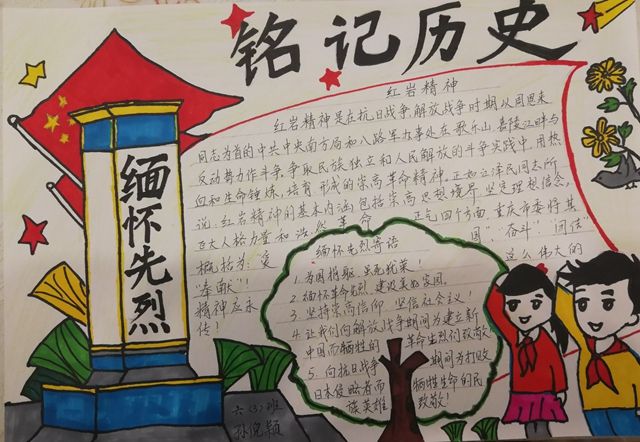 铭记历史
红岩精神
红岩精神是在抗日战争、解放战争时期以周恩来
同志为首的中共中央南方局和八路军办事处在歌乐山、嘉陵江畔与
反动势力作斗争、争取民族独立和人民解放的斗争实践中,用热
血和生命锤炼、培育、形成的崇高革命精神,正如江泽民同志所
说:红岩精神的基本内涵包括崇高思想境界、坚定理想信念、
巨大人格力量和浩然革命正气四个方面,重庆市委将其
概括为:"爱国"、"奋斗"、"团结"
"奉献"!这么伟大的
精神应永
传!
缅怀先烈
缅怀先烈寄语
1. 为国捐躯,虽死犹荣!
2. 缅怀革命先烈,建设美好家园。
3. 坚持崇高信仰,坚信社会主义!
4. 让我们向解放战争期间为建立新
中国而牺牲的革命先烈们致敬!
5. 向抗日战争期间为打败
日本侵略者而牺牲生命的民
族英雄致敬!
六(3)班
孙倪颖